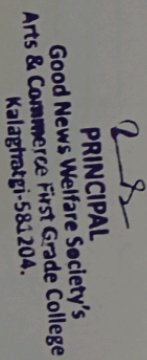 PRINCIPAL
Good News Welfare Society's
Arts & Commerce First Grade College
Kalaghatgi-581204.